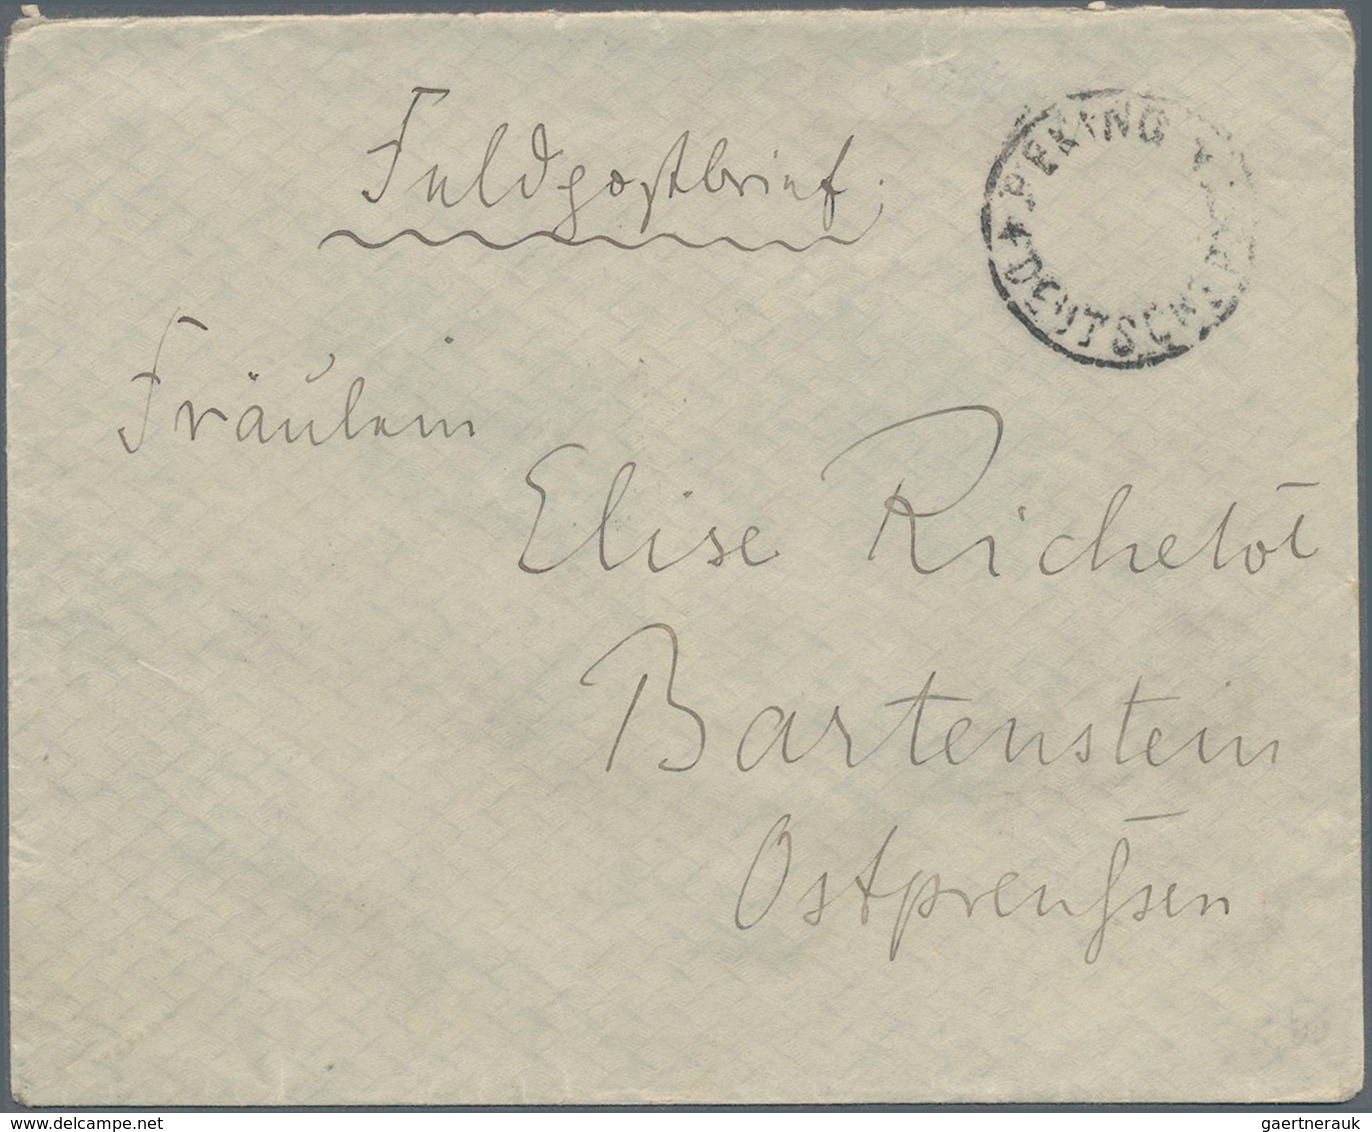 Feldpostbrief.
PEKING
DEUTSCHE P
Fräulein
Elise Richelot
Bartenstein
Ostpreußen
gaertnerauk